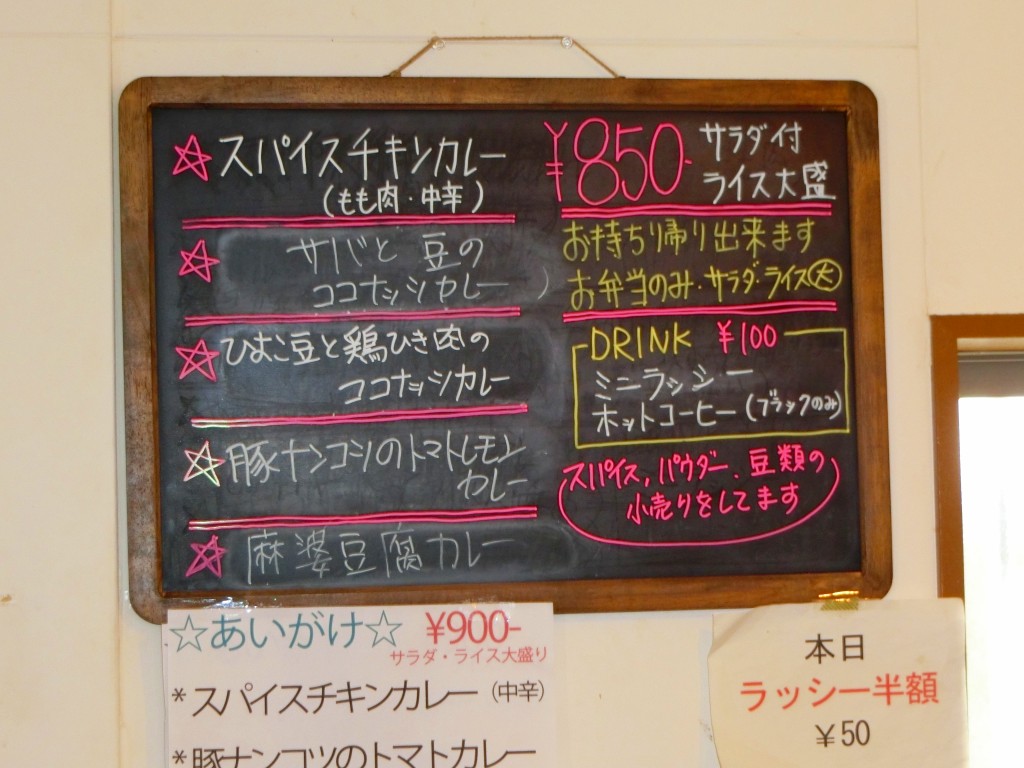 ☆スパイスチキンカレー
(もも肉・中辛)
☆サバと豆の
ココナッシカレー
☆ひよこ豆と鶏ひき肉の
ココナッシカレー
☆豚ナンコツのトマトレモン
カレー
☆麻婆豆腐カレー
¥850-
サラダ付
ライス大盛
お持ち帰り出来ます
お弁当のみ・サラダ・ライス大
DRINK ¥100
ミニラッシー
ホットコーヒー(ブラックのみ)
スパイス,パウダー、豆類の
小売りをしてます
☆あいがけ☆ ¥900-
サラダ・ライス大盛り
*スパイスチキンカレー(中辛)
*豚ナンコツのトマトカレー
本日
ラッシー半額
¥50